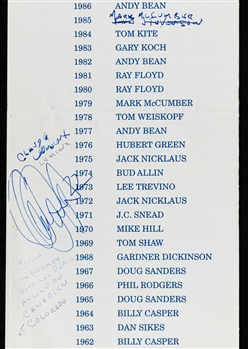 1986 ANDY BEAN
1985 MARK McCUMBER
1984 TOM KITE
1983 GARY KOCH
1982 ANDY BEAN
1981 RAY FLOYD
1980 RAY FLOYD
1979 MARK McCUMBER
1978 TOM WEISKOPF
1977 ANDY BEAN
CLAUDE
1976 HUBERT GREEN
LEMIEUX
1975 JACK NICKLAUS
1974 BUD ALLIN
1973 LEE TREVINO
1972 JACK NICKLAUS
1971 J.C. SNEAD
1970 MIKE HILL
1969 TOM SHAW
HOCKEY
1968 GARDNER DICKINSON
1967 DOUG SANDERS
1966 PHIL RODGERS
CANADIEN
1965 DOUG SANDERS
COLORADO
1964 BILLY CASPER
1963 DAN SIKES
1962 BILLY CASPER